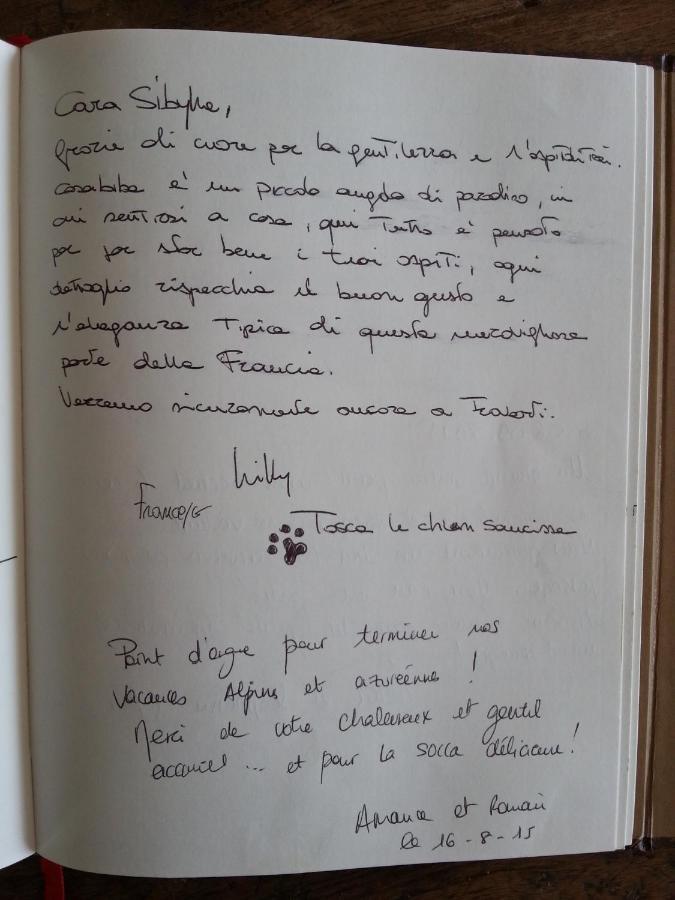 Cara Sibylle,
grazie di cuore per la gentilezza e l'ospitalità.
casabiba è un piccolo angolo di paradiso, in
cui sentirsi a casa, qui tutto è pensato
per far star bene i tuoi ospiti, ogni
dettaglio rispecchia il buon gusto e
l'eleganza tipica di questa meravigliosa
parte della Francia.
Verremo sicuramente ancora a trovarti.
Milly
Francesco
Tosca le chien saucisse
Point d'orgue pour terminer nos
vacances Alpins et azuréenne !
Merci de votre chaleureux et gentil
accueil ... et pour la socca délicieuse !
et Romain
le 16-8-15